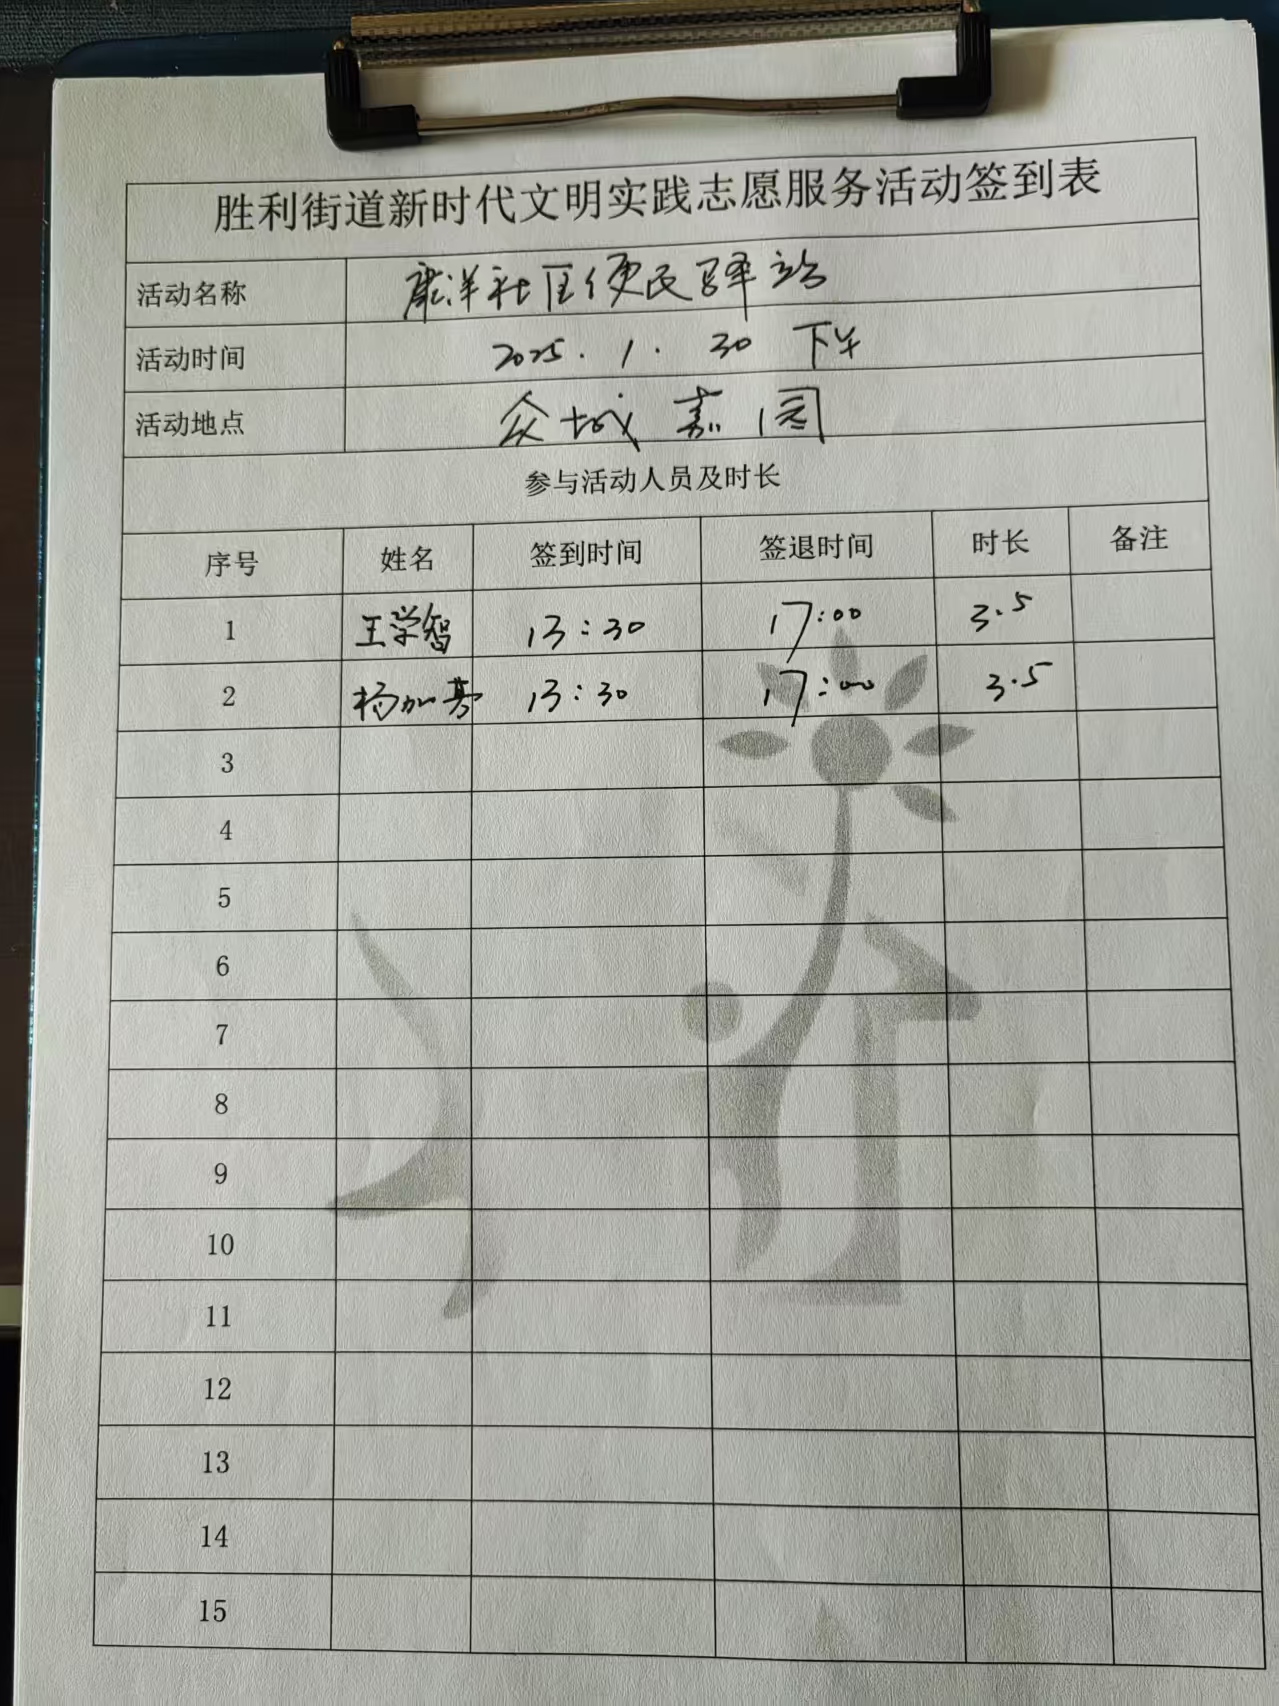 胜利街道新时代文明实践志愿服务活动签到表
活动名称 康洋社区便民驿站
活动时间 2025.1.30 下午
活动地点 众城嘉园
参与活动人员及时长
序号 姓名 签到时间 签退时间 时长 备注
1 王学智 13:30 17:00 3.5
2 杨加 13:30 17:00 3.5
3
4
5
6
7
8
9
10
11
12
13
14
15